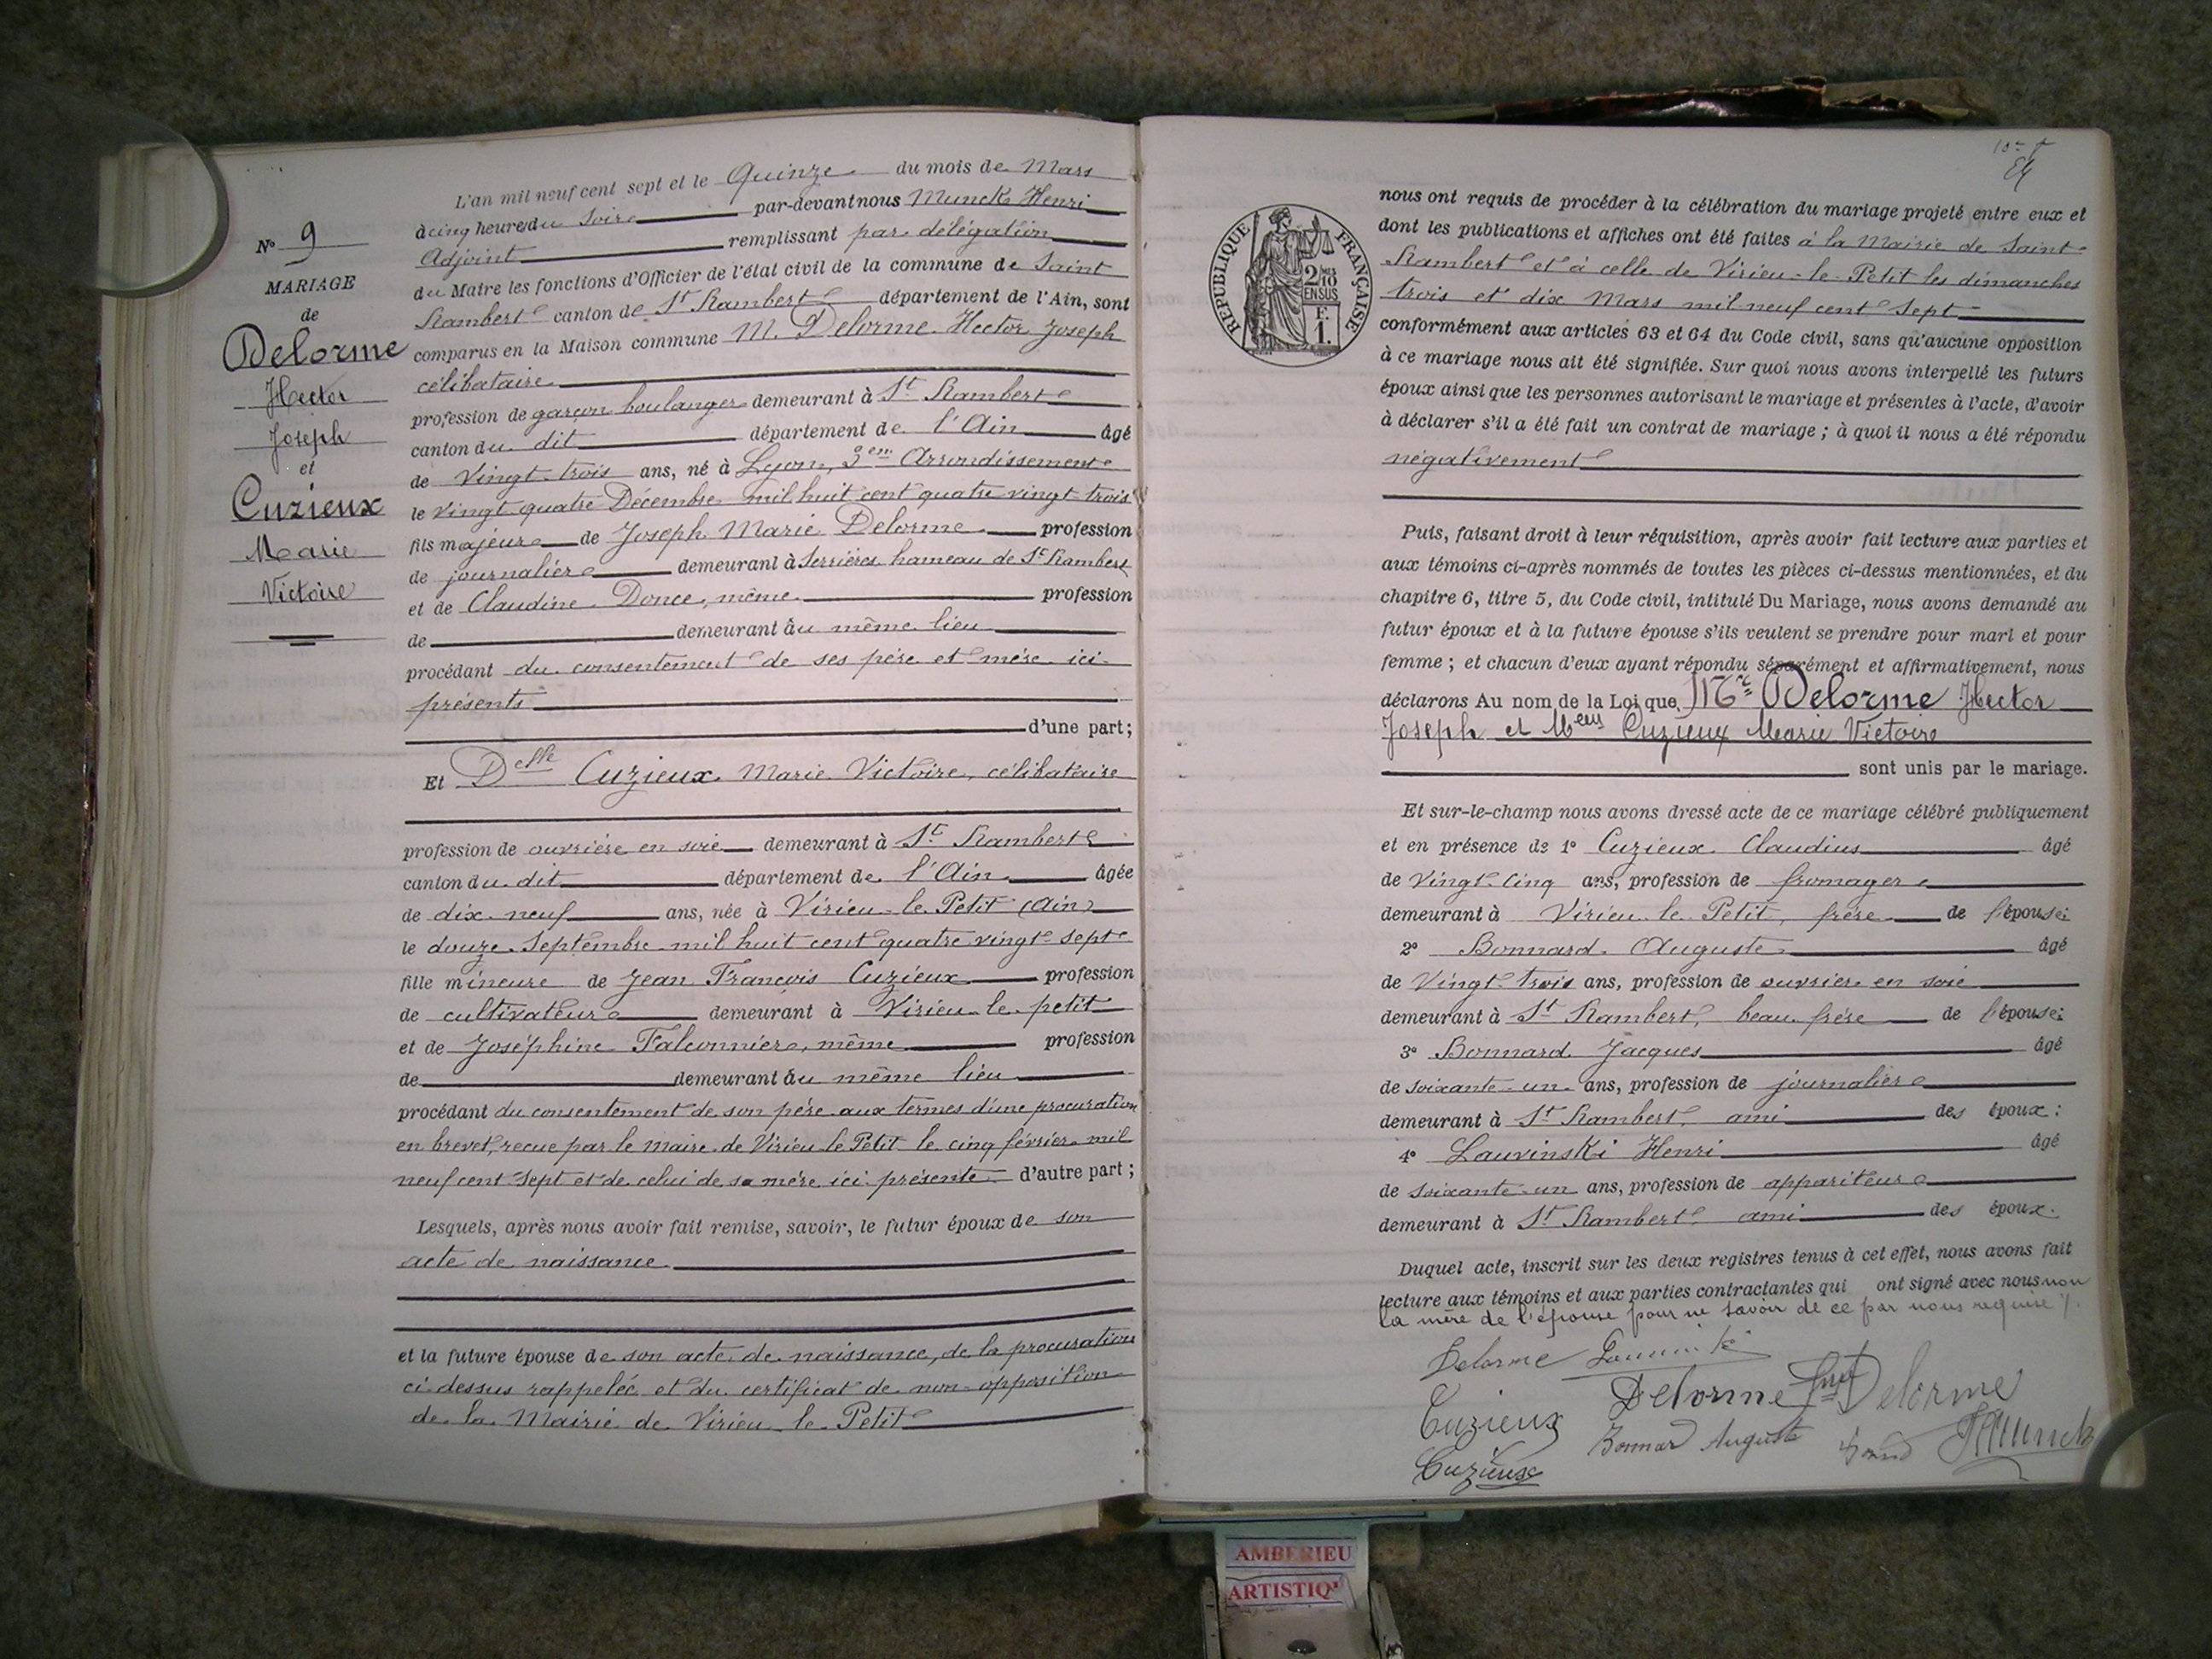 L'an mil neuf cent sept et le Quinze du mois de Mars
à cinq heure du Soir par-devant nous Munck Henri
Adjoint remplissant par délégation
du Maire les fonctions d'Officier de l'état civil de la commune de Saint
Rambert canton de St Rambert département de l'Ain, sont
comparus en la Maison commune M. Delorme Hector Joseph
célibataire
profession de garçon boulanger demeurant à St Rambert
canton du dit département de l'Ain âgé
de vingt trois ans, né à Lyon, 3em Arrondissement
le vingt quatre Décembre mil huit cent quatre vingt trois
fils majeur de Joseph Marie Delorme profession
de journalier demeurant à Serrières hameau de St Rambert
et de Claudine Donce, même profession
de demeurant au même lieu
procédant du consentement de ses père et mère ici
présents
d'une part;
Et Delle Cuzieux Marie Victoire, célibataire
profession de ouvrière en soie demeurant à St Rambert
canton du dit département de l'Ain âgée
de dix neuf ans, née à Virieu-le-Petit (Ain)
le douze Septembre mil huit cent quatre vingt sept
fille mineure de Jean François Cuzieux profession
de cultivateur demeurant à Virieu-le-petit
et de Joséphine Falconnier, même profession
de demeurant au même lieu
procédant du consentement de son père aux termes d'une procuration
en brevet, reçue par le Maire de Virieu-le-Petit le cinq février mil
neuf cent sept et de celui de sa mère ici présente d'autre part;
Lesquels, après nous avoir fait remise, savoir, le futur époux de son
acte de naissance
et la future épouse de son acte de naissance, de la procuration
ci-dessus rappelée et du certificat de non-opposition
de la Mairie de Virieu-le-Petit
No 9
MARIAGE
de
Delorme
Hector
Joseph
et
Cuzieux
Marie
Victoire
RÉPUBLIQUE FRANÇAISE
2/10
EN SUS
F.
1.
nous ont requis de procéder à la célébration du mariage projeté entre eux et
dont les publications et affiches ont été faites à la Mairie de Saint-
Rambert et à celle de Virieu-le-Petit les dimanches
trois et dix Mars mil neuf cent Sept
conformément aux articles 63 et 64 du Code civil, sans qu'aucune opposition
à ce mariage nous ait été signifiée. Sur quoi nous avons interpellé les futurs
époux ainsi que les personnes autorisant le mariage et présentes à l'acte, d'avoir
à déclarer s'il a été fait un contrat de mariage; à quoi il nous a été répondu
négativement
Puis, faisant droit à leur réquisition, après avoir fait lecture aux parties et
aux témoins ci-après nommés de toutes les pièces ci-dessus mentionnées, et du
chapitre 6, titre 5, du Code civil, intitulé Du Mariage, nous avons demandé au
futur époux et à la future épouse s'ils veulent se prendre pour mari et pour
femme; et chacun d'eux ayant répondu séparément et affirmativement, nous
déclarons Au nom de la Loi que Mr Delorme Hector
Joseph et Cuzieux Marie Victoire
sont unis par le mariage.
Et sur-le-champ nous avons dressé acte de ce mariage célébré publiquement
et en présence de 1° Cuzieux Claudius âgé
de Vingt-Cinq ans, profession de fromager
demeurant à Virieu-le-Petit, frère de l'épouse;
2° Bonnard Auguste âgé
de Vingt-trois ans, profession de ouvrier en soie
demeurant à St Rambert, beau frère de l'épouse;
3° Bonnard Jacques âgé
de soixante-un ans, profession de journalier
demeurant à St Rambert, ami des époux;
4° Lauvinski Henri âgé
de soixante-un ans, profession de appariteur
demeurant à St Rambert ami des époux.
Duquel acte, inscrit sur les deux registres tenus à cet effet, nous avons fait
lecture aux témoins et aux parties contractantes qui ont signé avec nous non
la mère de l'épouse pour ne savoir de ce par nous requise
Delorme
Delorme Delorme
Cuzieux Bonnard Auguste Munck
Cuzieux
AMBERIEU
ARTISTIQ